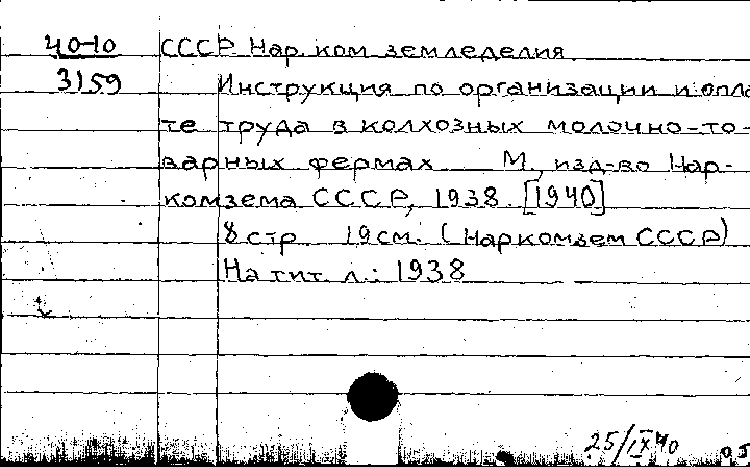 40-10 СССР. Нар. ком. земледелия
3159 Инструкция по организации и опла
те труда в колхозных молочно-то-
варных фермах М., изд-во Нар-
комзема СССР, 1938. [1940]
8 стр. 19 см. (Наркомзем СССР)
На тит. л.: 1938
25/IX 40